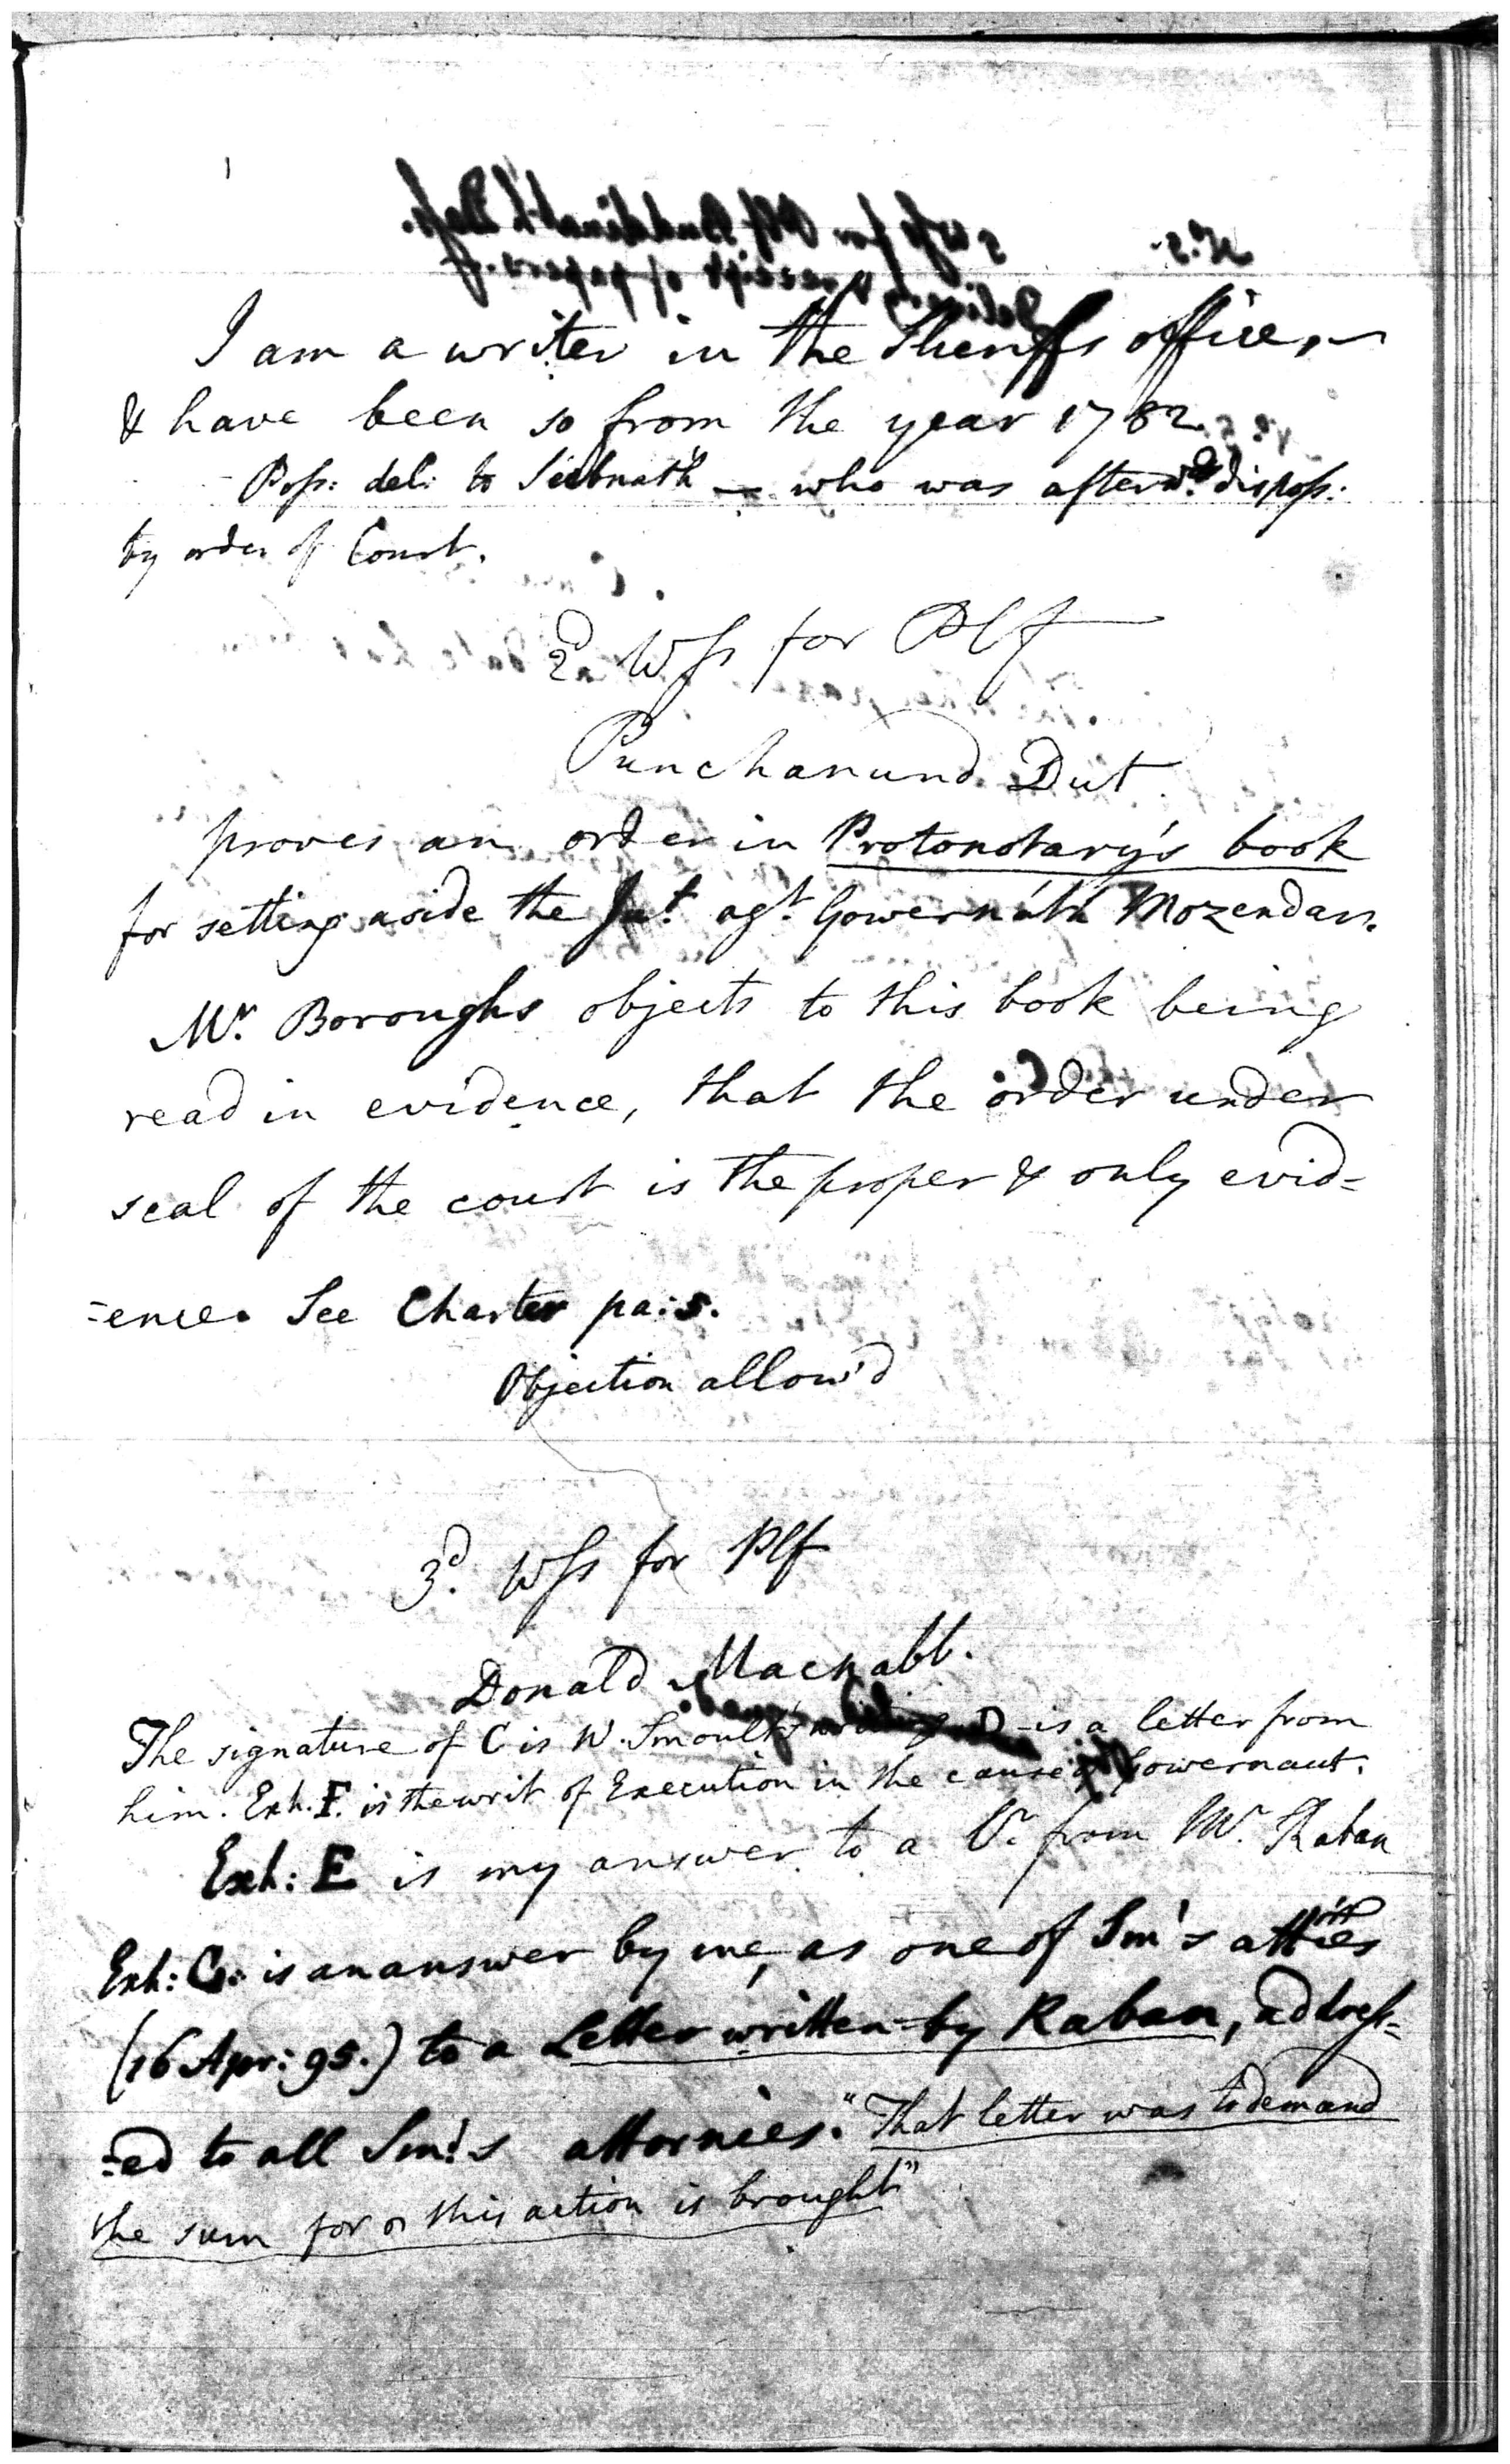 I am a writer in the Sheriffs office,
& have been so from the year 1782.
Poss: del: to Siebnath — who was afterwd. disposs:
by order of Court.
2d Wss for Plf
Punchanund Dut.
proves an order in Protonotary's book
for setting aside the Jut. agt. Gowernáth Mozendar.
Mr. Boroughs objects to this book being
read in evidence, that the order under
seal of the court is the proper & only evid=
=ence. See Charter pa: 5.
Objection allow'd
3d. Wss for Plf
Donald Macnabb.
The signature of C is W. Smoult's writing D is a letter from
him. Exh. F. is the writ of Execution in the cause Gowernaut.
Exh: E is my answer to a from Mr. Raban
Exh: G: is an answer by me, as one of Sm's atties
(16 Apr: 95.) to a Letter written by Raban, address=
=ed to all Sm's attornies. "That letter was to demand
the sum for this action is brought"